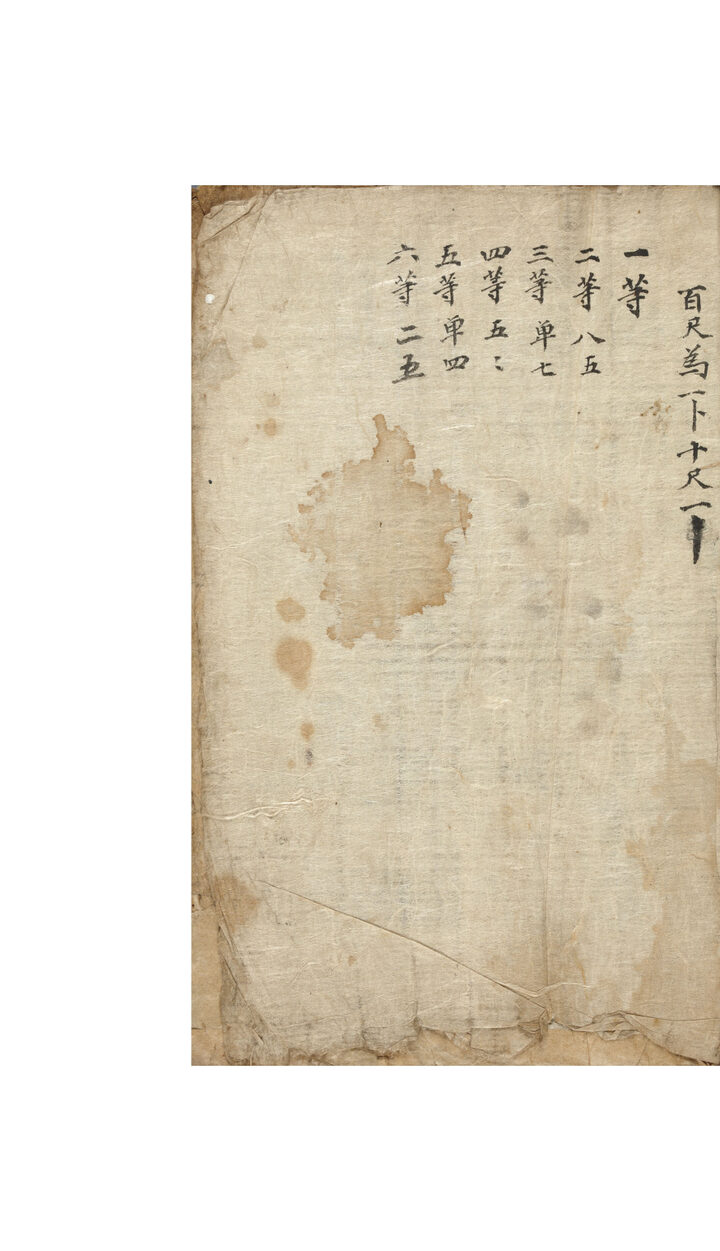 百尺為一卜十尺一
一等
二等八五
三等单七
四等五〻
五等单四
六等二五